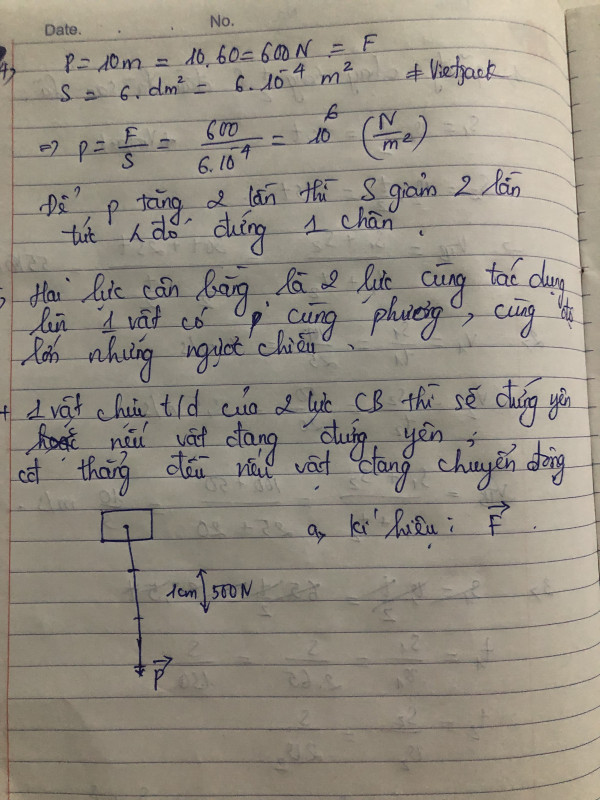 Date. . . No.
4, P = 10m = 10.60 = 600 N = F
S = 6. dm² = 6.10⁻⁴ m² ≠ Vietjack
=> p = F/S = 600/6.10⁻⁴ = 10⁶ (N/m²)
Để p tăng 2 lần thì S giảm 2 lần
tức là đó đứng 1 chân.
Hai lực cân bằng là 2 lực cùng tác dụng
lên 1 vật có p' cùng phương, cùng độ
lớn nhưng ngược chiều.
+ 1 vật chịu t/d của 2 lực CB thì sẽ đứng yên
nếu vật đang đứng yên;
cđ thẳng đều nếu vật đang chuyển động
a, kí hiệu: F⃗.
1cm 500N
P⃗